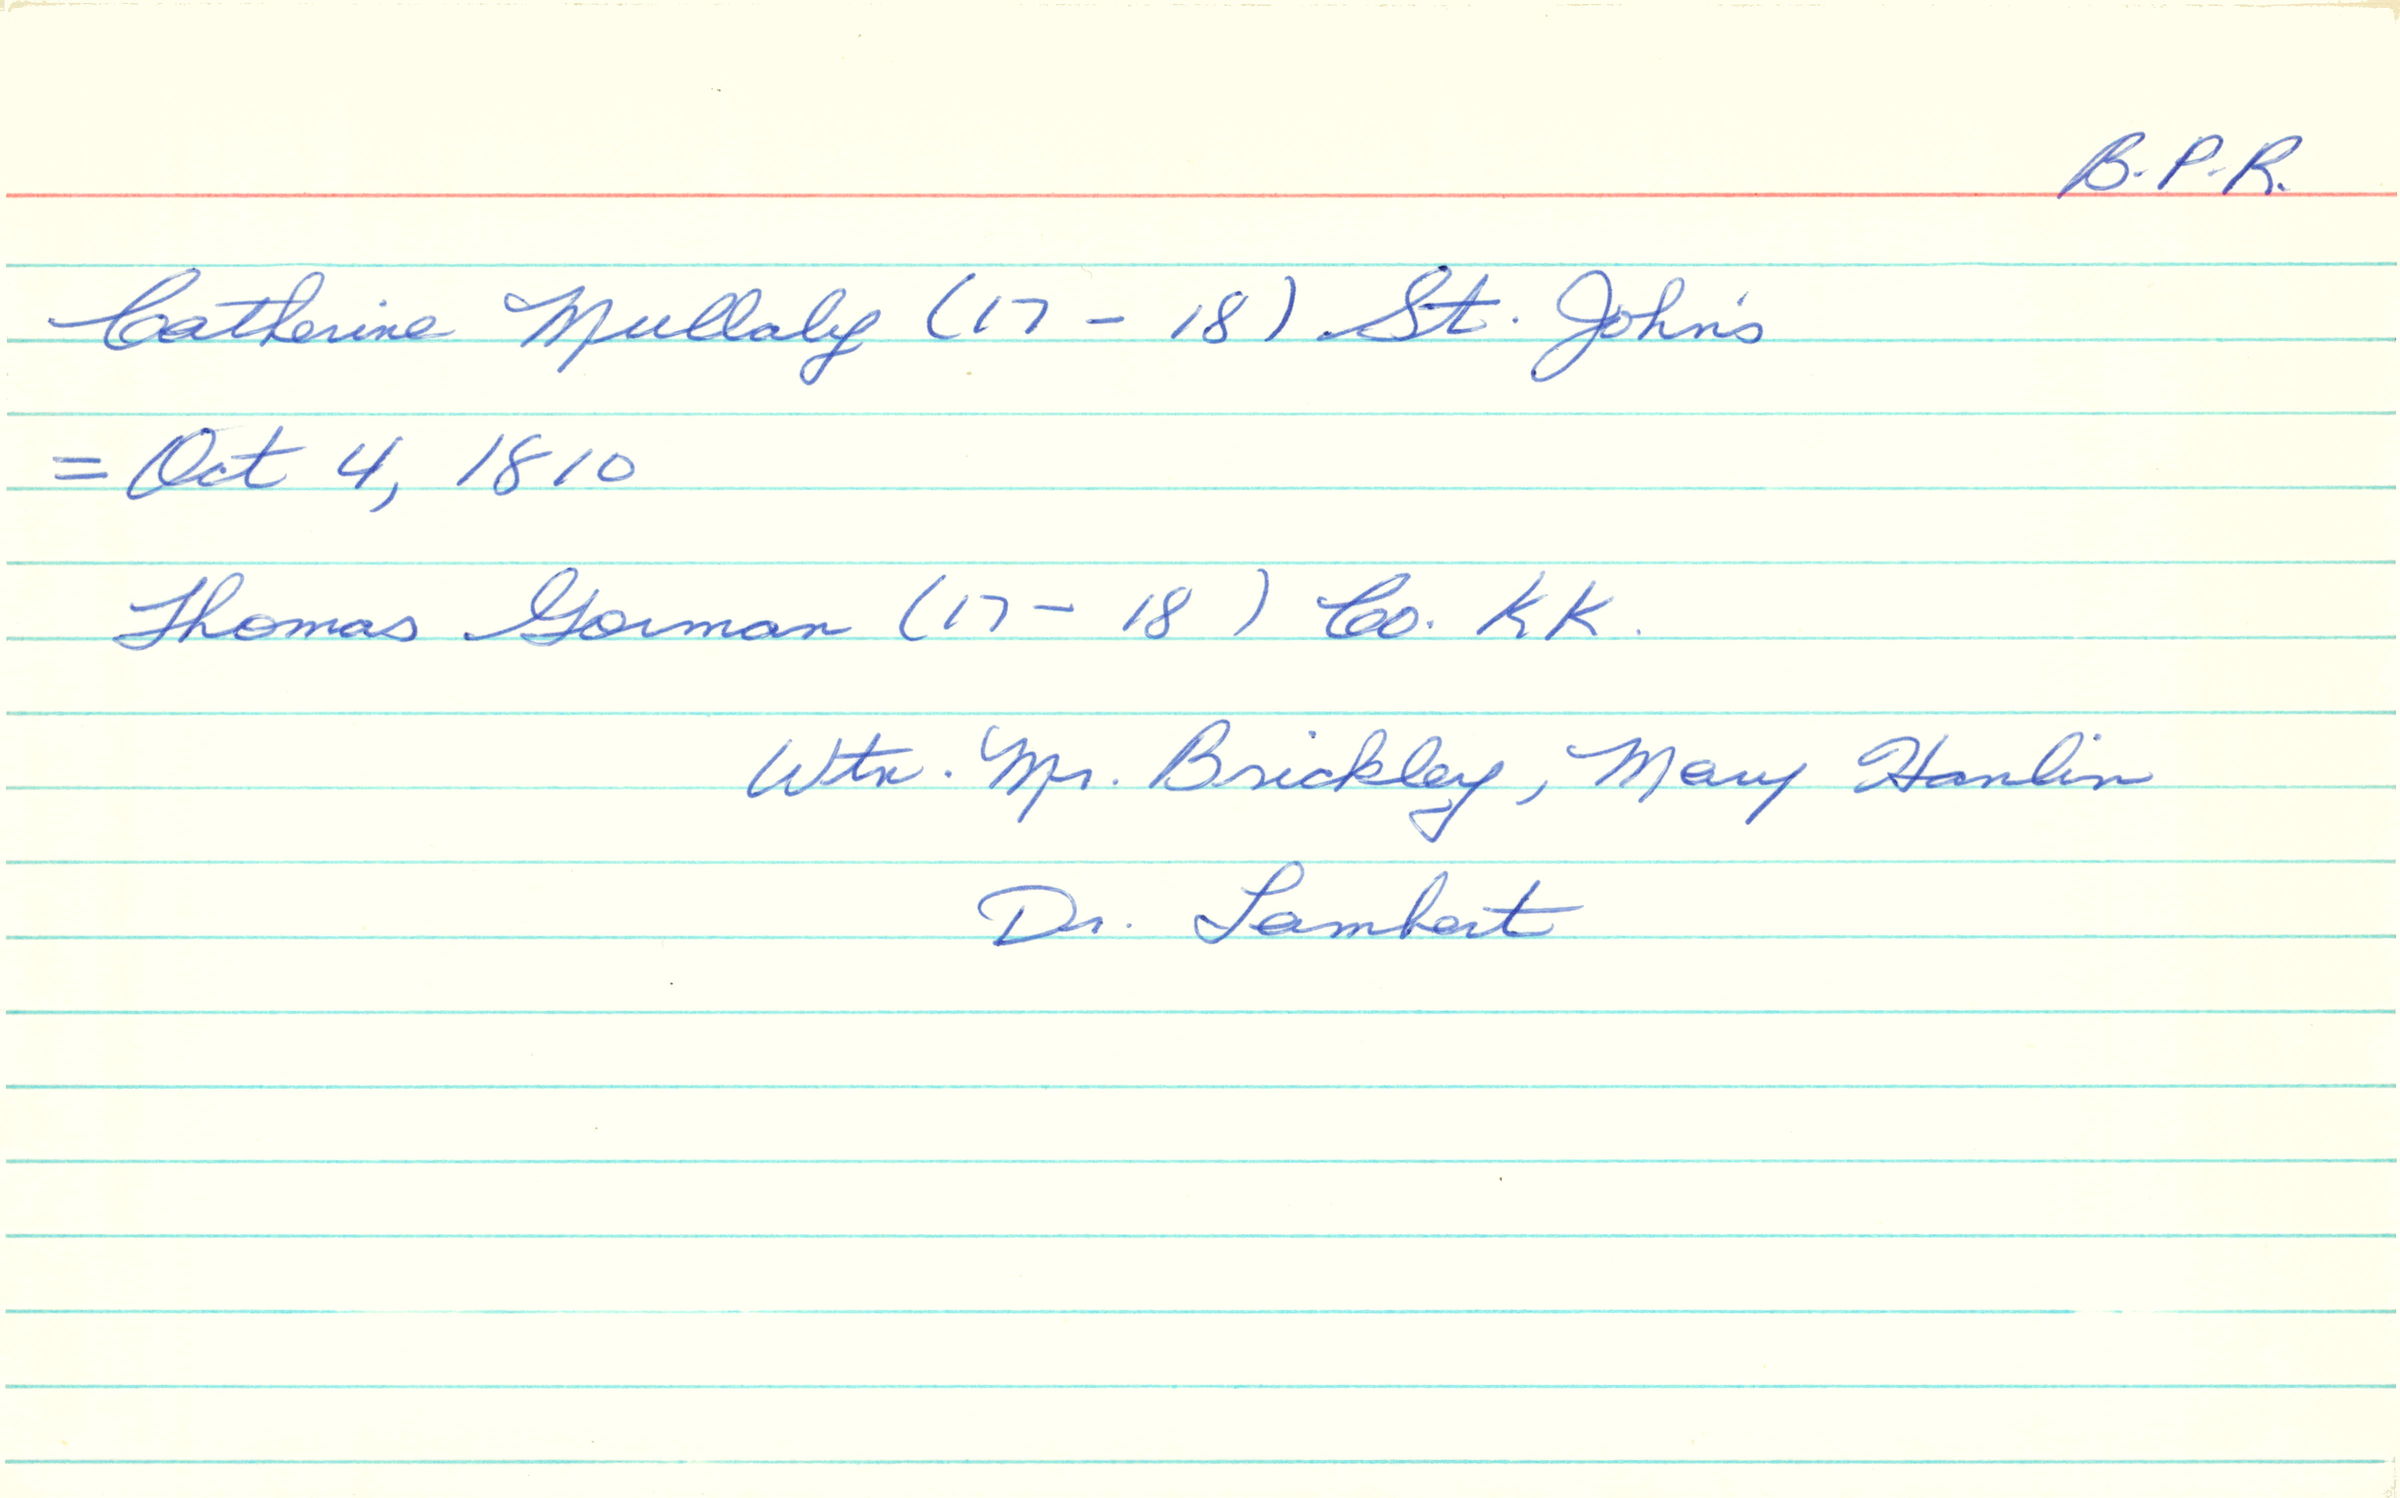 B.P.R.
Catherine Mullaly (17 - 18) St. John's
= Oct 4, 1810
Thomas Gorman (17 - 18 ) Co. KK.
Wtn. Mr. Brickley, Mary Hanlin
Dr. Lambert